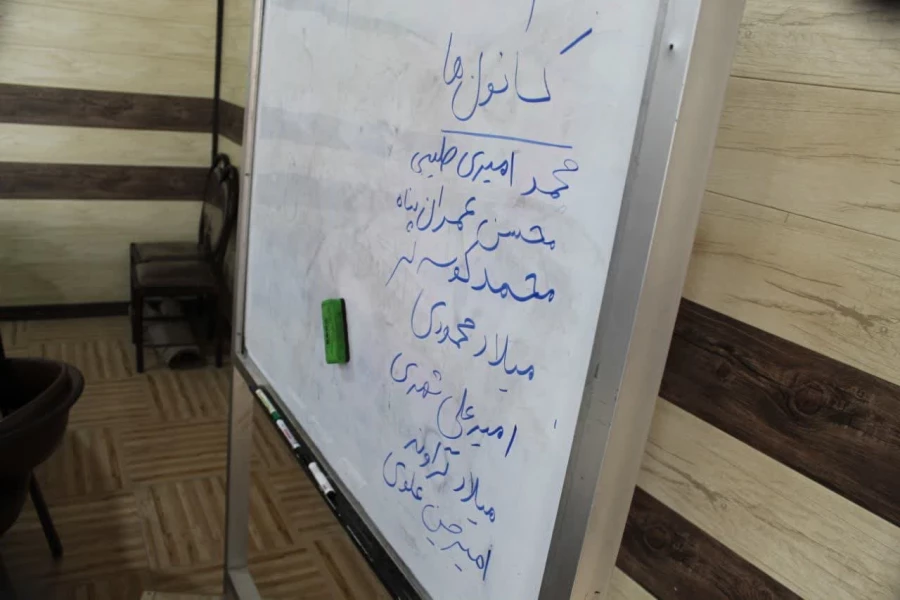 کانول ها
محمد امیری طیبی
محسن عمران پناه
محمد کوسه لر
میلاد محمودی
امیرعلی
میلاد گراونه
امیرحسین علوی